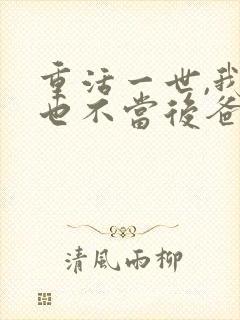 重活一世,我
也不當後爸
清風雨柳